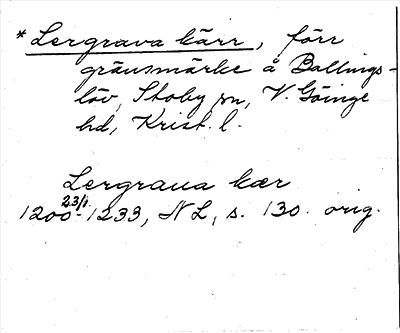 * Lergrava kärr, förr
gränsmärke å Ballings-
löv, Stoby sn, V. Göinge
hd, Krist. l.
Lergraua kær
1200-23/1 1233, NL, s. 130. orig.